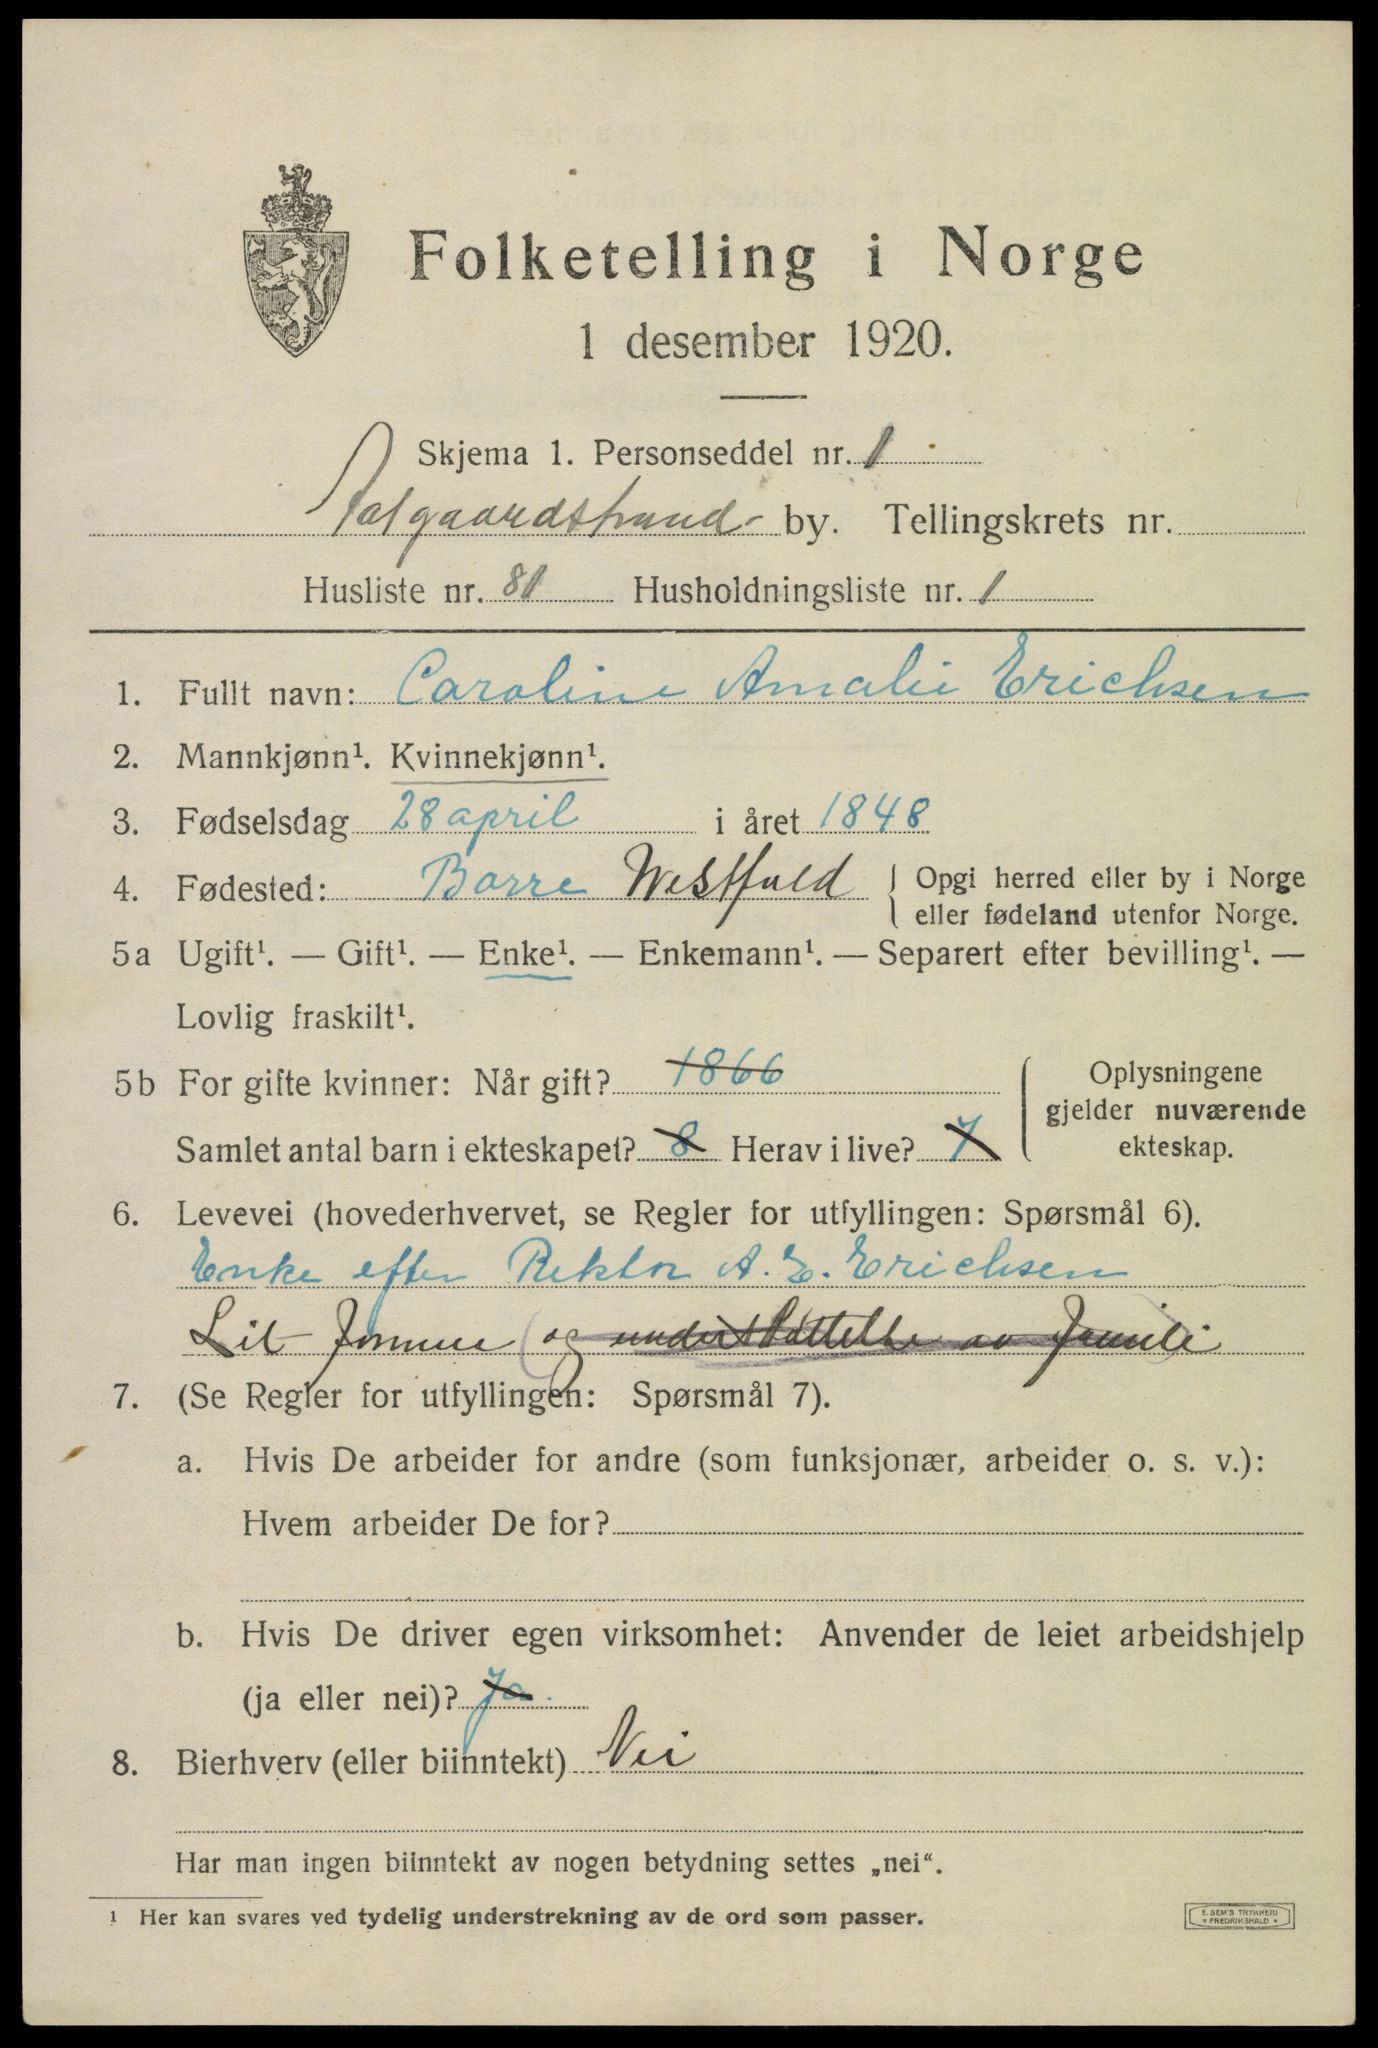 Folketelling i Norge
1 desember 1920.
Skjema 1. Personseddel nr. 1
Aasgaardstrand by. Tellingskrets nr.
Husliste nr. 81 Husholdningsliste nr. 1
1. Fullt navn: Caroline Amalie Erichsen
2. Mannkjønn¹. Kvinnekjønn¹.
3. Fødselsdag 28 april i året 1848
4. Fødested: Borre Westfold { Opgi herred eller by i Norge
eller fødeland utenfor Norge.
5a Ugift¹. — Gift¹. — Enke¹. — Enkemann¹. — Separert efter bevilling¹. —
Lovlig fraskilt¹.
5b For gifte kvinner: Når gift? 1866
Samlet antal barn i ekteskapet? 8 Herav i live? 7
Oplysningene
gjelder nuværende
ekteskap.
6. Levevei (hovederhvervet, se Regler for utfyllingen: Spørsmål 6).
Enke efter Rektor A. E. Erichsen
og understøttelse av Familie
7. (Se Regler for utfyllingen: Spørsmål 7).
a. Hvis De arbeider for andre (som funksjonær, arbeider o. s. v.):
Hvem arbeider De for?
b. Hvis De driver egen virksomhet: Anvender de leiet arbeidshjelp
(ja eller nei)? Ja.
8. Bierhverv (eller biinntekt) Nei
Har man ingen biinntekt av nogen betydning settes „nei“.
¹ Her kan svares ved tydelig understrekning av de ord som passer.
E. SEM'S TRYKKERI
FREDRIKSHALD